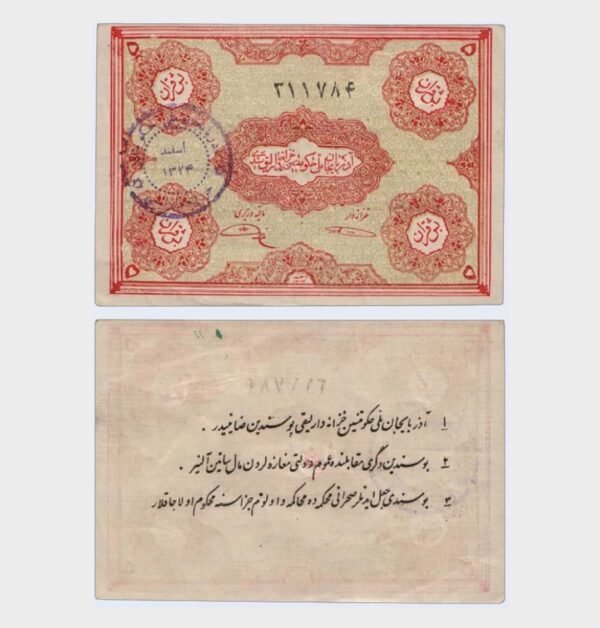 ۵ ۵
۳۱۱۷۸۴
بش قران
بش قران
آذربایجان ملی حکومتی
اسفند
۱۳۲۴
خزانه دار
مالیه وزیری
بش قران
بش قران
۵ ۵
۱ آذربایجان ملی حکومتینین خزانه دارلیقی بو سندین ضامنیدیر .
۲ بو سندین دگری مقابلینده عموم دولتی مغازه لردن مال ساتین آلنیر .
۳ بو سندی جعل ایدنلر صحرائی محکمه ده محاکمه و اولوم جزاسنه محکوم اولاجاقلار